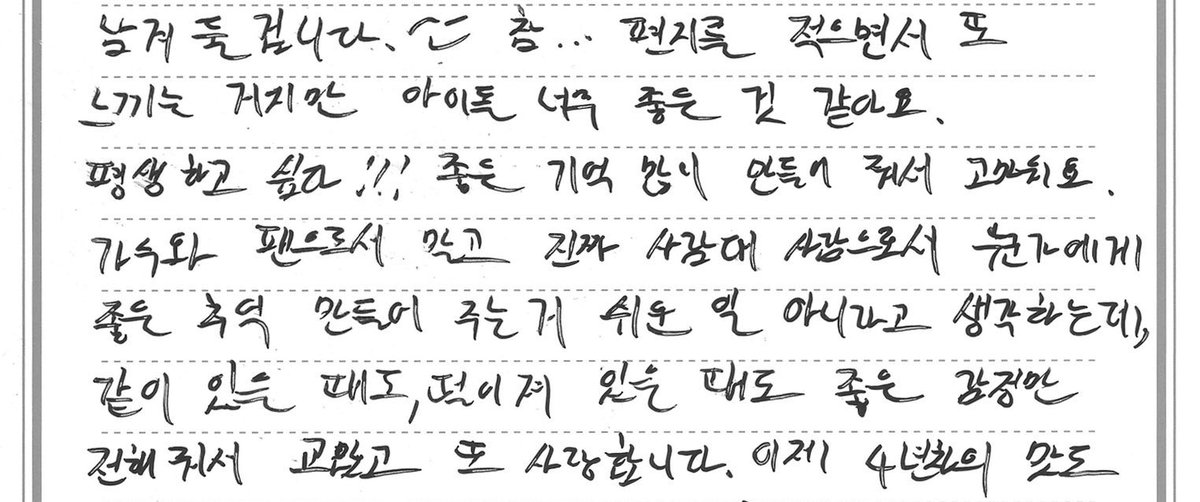 남겨 둘 겁니다. ^^ 참... 편지를 적으면서 또
느끼는 거지만 아이돌 너무 좋은 것 같아요.
평생 하고 싶다!!! 좋은 기억 많이 만들어 줘서 고마워요.
가수와 팬으로서 말고 진짜 사람 대 사람으로서 누군가에게
좋은 추억 만들어 주는 거 쉬운 일 아니라고 생각하는데,
같이 있을 때도, 떨어져 있을 때도 좋은 감정만
전해줘서 고맙고 또 사랑합니다. 이제 4년차의 맛도